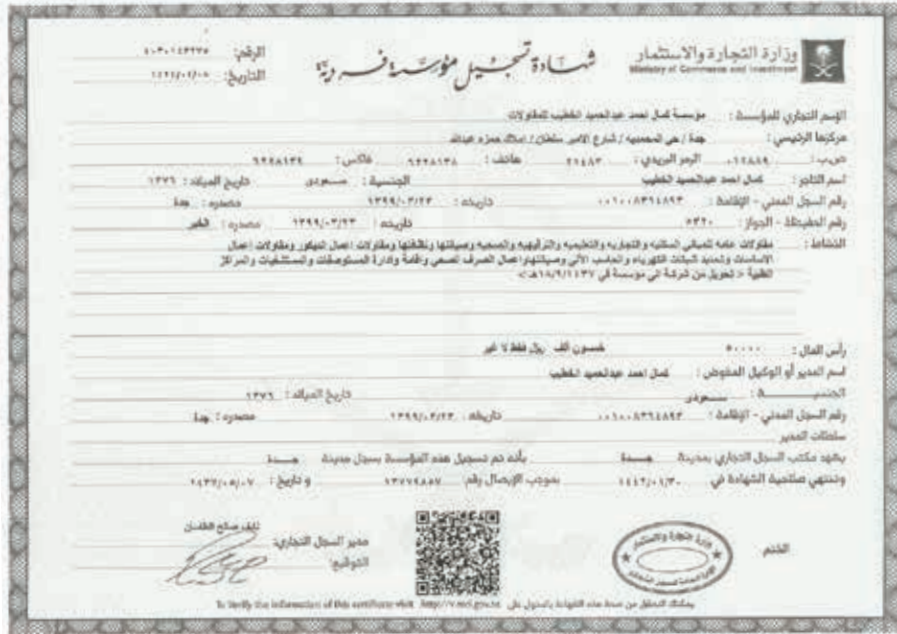 وزارة التجارة والاستثمار
Ministry of Commerce and Investment
شهادة تسجيل مؤسسة فردية
الرقم: ٤٠٣٠١٤٣٢٣٥
التاريخ:
الإسم التجاري للمؤسسة : مؤسسة كمال احمد عبدالحميد الخطيب للمقاولات
مركزها الرئيسي : جدة / حي المحمديه / شارع الامير سلطان / املاك حمزه عبدالله
ص.ب : الرمز البريدي : ٢١٤٨٣ هاتف : ٦٢٢٨١٣٨ فاكس : ٦٢٢٨١٣٩
اسم التاجر : كمال احمد عبدالحميد الخطيب الجنسية : سعودى تاريخ الميلاد : ١٣٧٦
رقم السجل المدني - الإقامة : ١٠٠٨٣٦٤٨٩٣ تاريخه : ١٣٩٩/٠٣/٢٣ مصدره : جدة
رقم الحفيظة - الجواز : ٦٣٢٠ تاريخه : ١٣٩٩/٠٣/٢٣ مصدره : الخبر
النشاط : مقاولات عامه للمباني السكنيه والتجاريه والتعليميه والترفيهيه والصحيه وصيانتها ونظافتها ومقاولات اعمال الديكور ومقاولات اعمال
الاساسات وتمديد شبكات الكهرباء والحاسب الآلي وصيانتها واعمال الصرف الصحي واقامة وادارة المستوصفات والمستشفيات والمراكز
الطبية < تحويل من شركة الى مؤسسة في ١٨/٩/١٤٣٧هـ >
رأس المال : ٥٠٠٠٠ خمسون ألف ريال فقط لا غير
اسم المدير أو الوكيل المفوض : كمال احمد عبدالحميد الخطيب
الجنسيـــة : سعودى تاريخ الميلاد : ١٣٧٦
رقم السجل المدني - الإقامة : ١٠٠٨٣٦٤٨٩٣ تاريخه : ١٣٩٩/٠٣/٢٣ مصدره : جدة
سلطات المدير
يشهد مكتب السجل التجاري بمدينة جدة بأنه تم تسجيل هذه المؤسسة بسجل مدينة جدة
وتنتهي صلاحية الشهادة في ١٤٤٢/٠١/٣٠ بموجب الإيصال رقم ١٣٧٧٩٨٥٧ و تاريخ : ١٤٣٧/٠٥/٠٧
الختم
وزارة التجارة والاستثمار
مدير السجل التجاري: نايف صالح
التوقيع:
يمكنك التحقق من صحة هذه الشهادة بالدخول على http://v.mci.gov.sa To Verify the information of this certificate visit